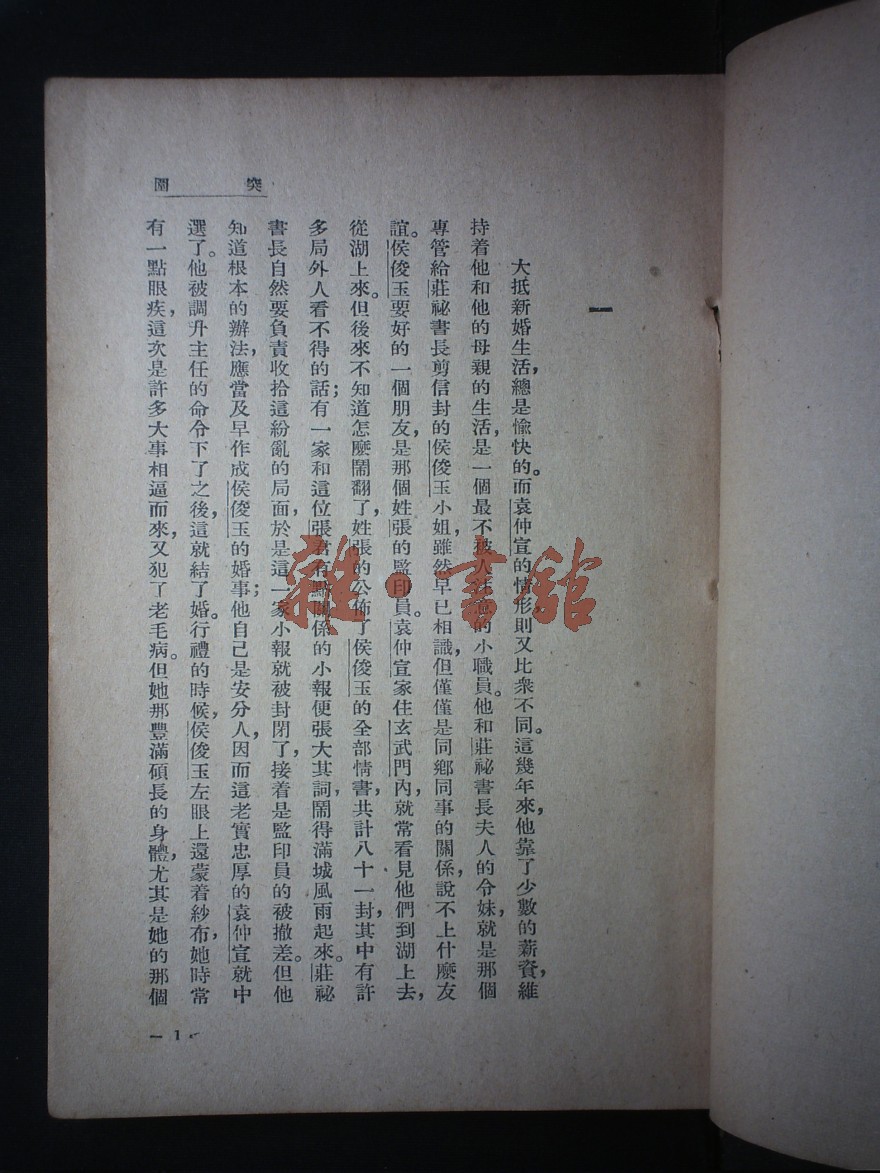 突圍
一
大抵新婚生活，總是愉快的。而袁仲宣的情形，則又比衆不同。這幾年來，他靠了少數的薪資，維
持着他和他的母親的生活，是一個最不被人注意的小職員。他和莊祕書長夫人的令妹，就是那個
專管給莊祕書長剪信封的侯俊玉小姐，雖然早已相識，但僅僅是同鄉同事的關係，說不上什麼友
誼。侯俊玉要好的一個朋友，是那個姓張的監印員。袁仲宣家住玄武門內，就常看見他們到湖上去，
從湖上來。但後來不知道怎麼鬧翻了，姓張的公佈了侯俊玉的全部情書，共計八十一封，其中有許
多局外人看不得的話；有一家和這位張君有點關係的小報便張大其詞，鬧得滿城風雨起來。莊祕
書長自然要負責收拾這紛亂的局面，於是這一家小報就被封閉了，接着是監印員的被撤差。但他
知道根本的辦法，應當及早作成侯俊玉的婚事；他自己是安分人，因而這老實忠厚的袁仲宣就中
選了。他被調升主任的命令下了之後，這就結了婚。行禮的時候，侯俊玉左眼上還蒙着紗布，她時常
有一點眼疾，這次是許多大事相逼而來，又犯了老毛病。但她那豐滿碩長的身體，尤其是她的那個
— 1 —
雜·書館